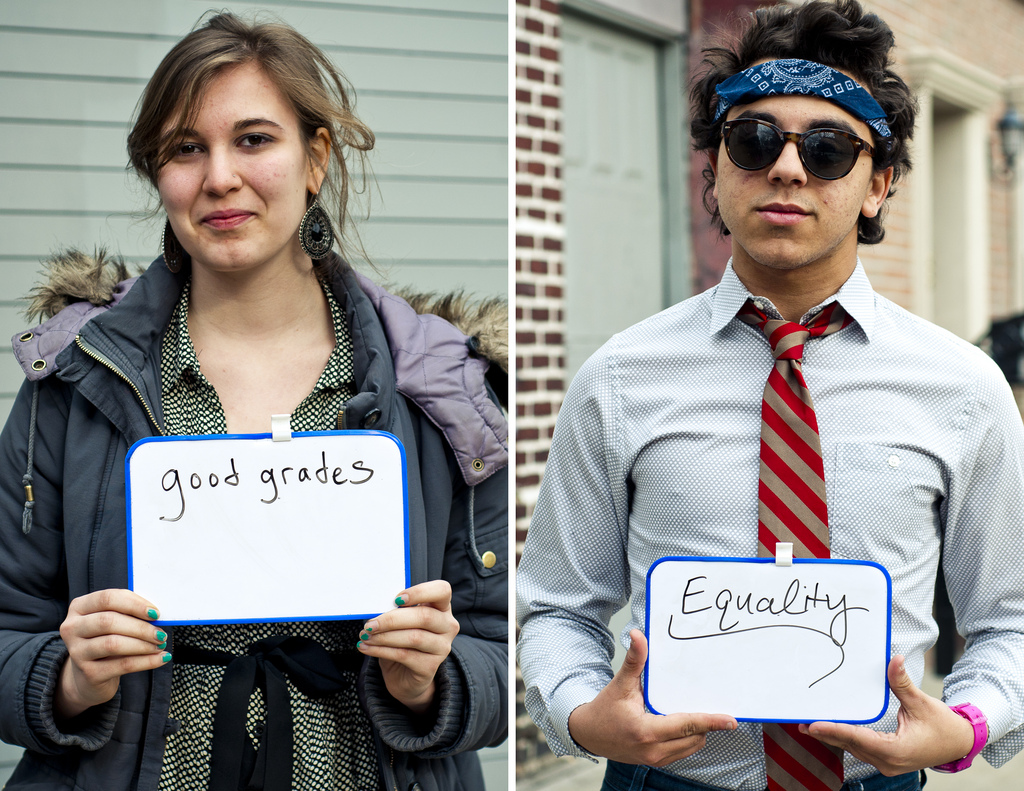 good grades
Equality